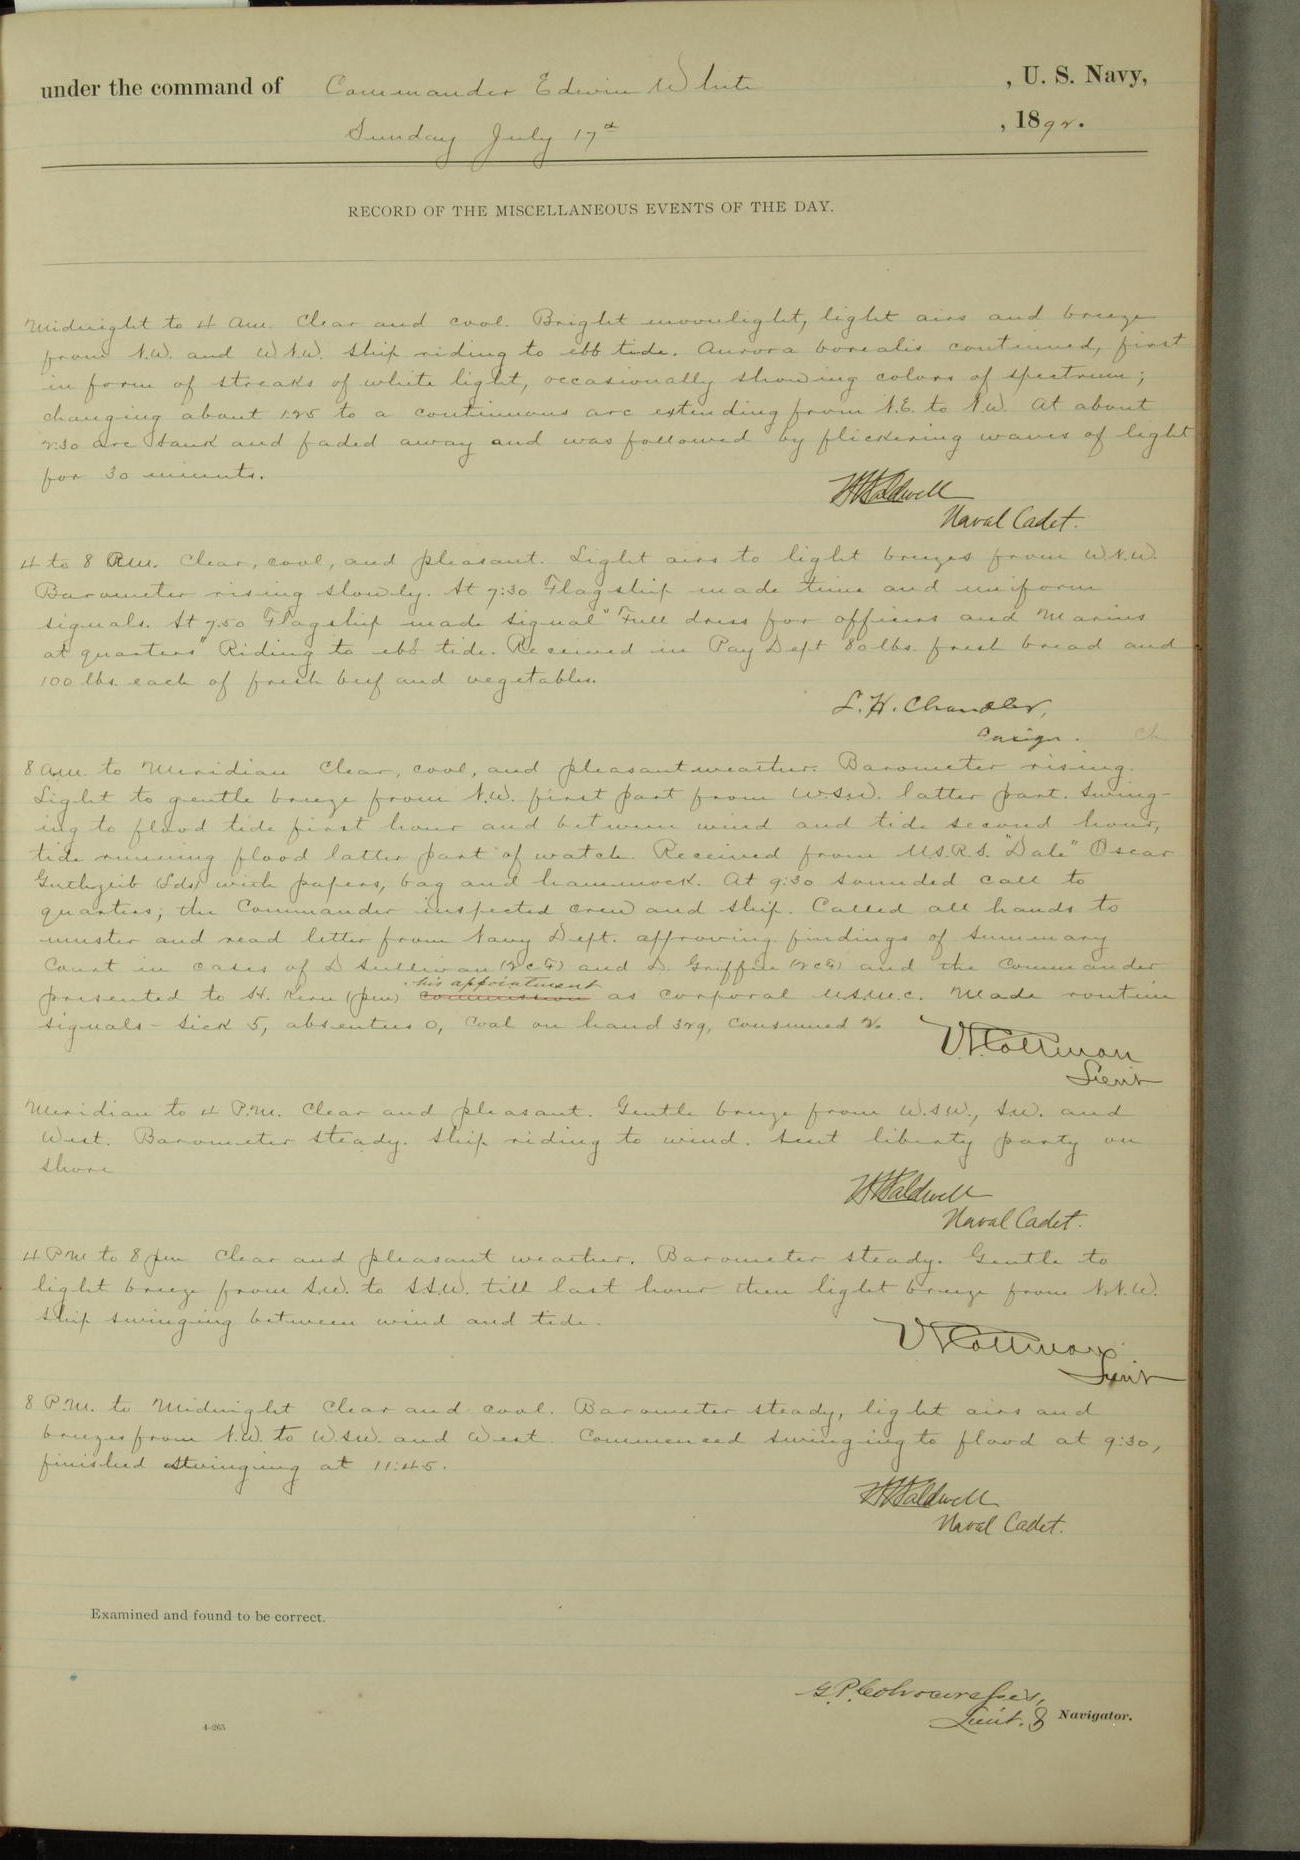 under the command of Commander Edwin White , U. S. Navy,
Sunday July 17th , 1892.
RECORD OF THE MISCELLANEOUS EVENTS OF THE DAY.
Midnight to 4 a.m. Clear and cool. Bright moonlight, light airs and breeze
from N.W. and W.N.W. Ship riding to ebb tide. Aurora borealis continued, first
in form of streaks of white light, occasionally showing colors of spectrum;
changing about 1.25 to a continuous arc extending from N.E. to N.W. At about
2:30 arc sank and faded away and was followed by flickering waves of light
for 30 minutes.
Caldwell
Naval Cadet.
4 to 8 a.m. Clear, cool, and pleasant. Light airs to light breezes from W.N.W.
Barometer rising slowly. At 7:30 Flagship made time and uniform
signals. At 7.50 Flagship made signal "Full dress for officers and Marines
at quarters" Riding to ebb tide. Received in Pay Dept 80 lbs. fresh bread and
100 lbs. each of fresh beef and vegetables.
L. H. Chandler,
Ensign.
8 a.m. to Meridian Clear, cool, and pleasant weather. Barometer rising.
Light to gentle breeze from N.W. first part from W.S.W. latter part. Swing-
ing to flood tide first hour and between wind and tide second hour,
tide running flood latter part of watch. Received from U.S.R.S. "Dale" Oscar
(Lds) with papers, bag and hammock. At 9:30 sounded call to
quarters; the Commander inspected crew and ship. Called all hands to
muster and read letter from Navy Dept. approving findings of Summary
Court in cases of D Sullivan and D. Griffin and the Commander
his appointment
presented to H. Kern (pvt) commission as corporal U.S.M.C. Made routine
signals - Sick 5, absentees 0, Coal on hand 329, consumed 2.
Cottman
Lieut
Meridian to 4 P.M. Clear and pleasant. Gentle breeze from W.S.W., S.W. and
West. Barometer steady. Ship riding to wind. Sent liberty party on
shore
Caldwell
Naval Cadet.
4 P.M. to 8 pm Clear and pleasant weather. Barometer steady. Gentle to
light breeze from S.W. to S.S.W. till last hour then light breeze from N.N.W.
Ship swinging between wind and tide.
Cottman
Lieut
8 P.M. to Midnight Clear and cool. Barometer steady, light airs and
breezes from N.W. to W.S.W. and West. Commenced swinging to flood at 9:30,
finished swinging at 11:45.
Caldwell
Naval Cadet.
Examined and found to be correct.
G. P. Colvocoresses,
Lieut. & Navigator.
4-265